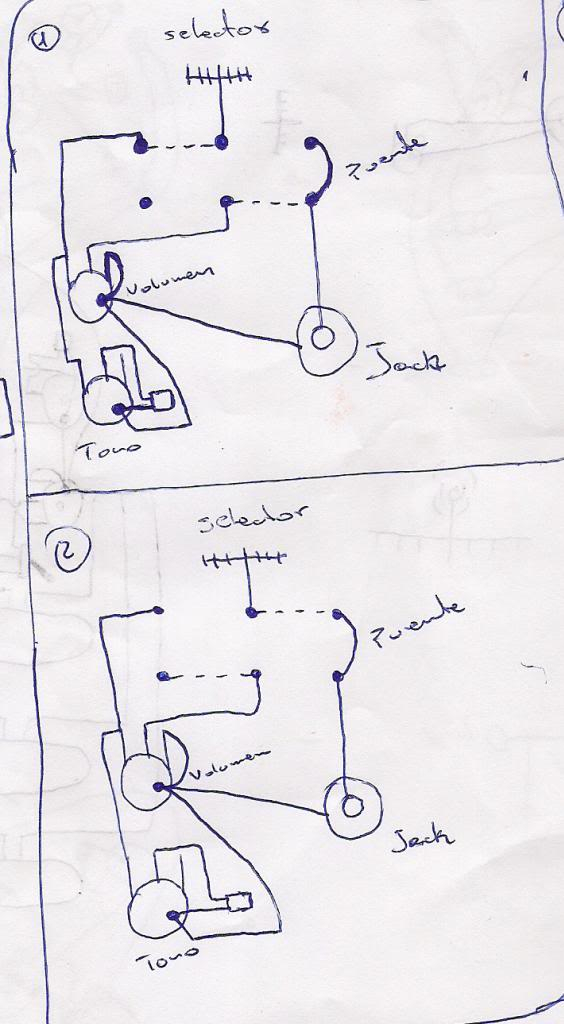 1
selector
Puente
Volumen
Jack
Tono
2
selector
Puente
Volumen
Jack
Tono